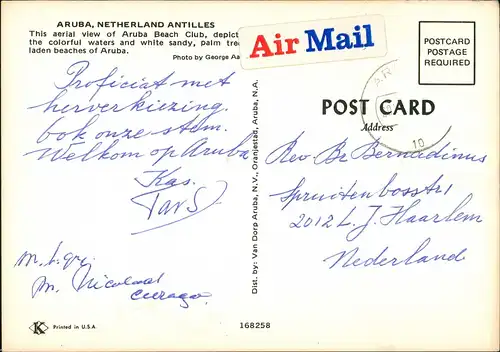 ARUBA, NETHERLAND ANTILLES
This aerial view of Aruba Beach Club, depict
the colorful waters and white sandy, palm tre
laden beaches of Aruba.
Photo by George Aa
Air Mail
POSTCARD
POSTAGE
REQUIRED
AR
10
POST CARD
Address
Proficiat met
herverkiezing.
ook onze stem.
Welkom op Aruba
Kas.
Rev. Br Bernadinus
Spruitenbosstr 1
2012 L.J. Haarlem
Nederland
m. Nicolaas
Curaçao
Dist. by: Van Dorp Aruba, N.V., Oranjestad, Aruba, N.A.
K
Printed in U.S.A.
168258